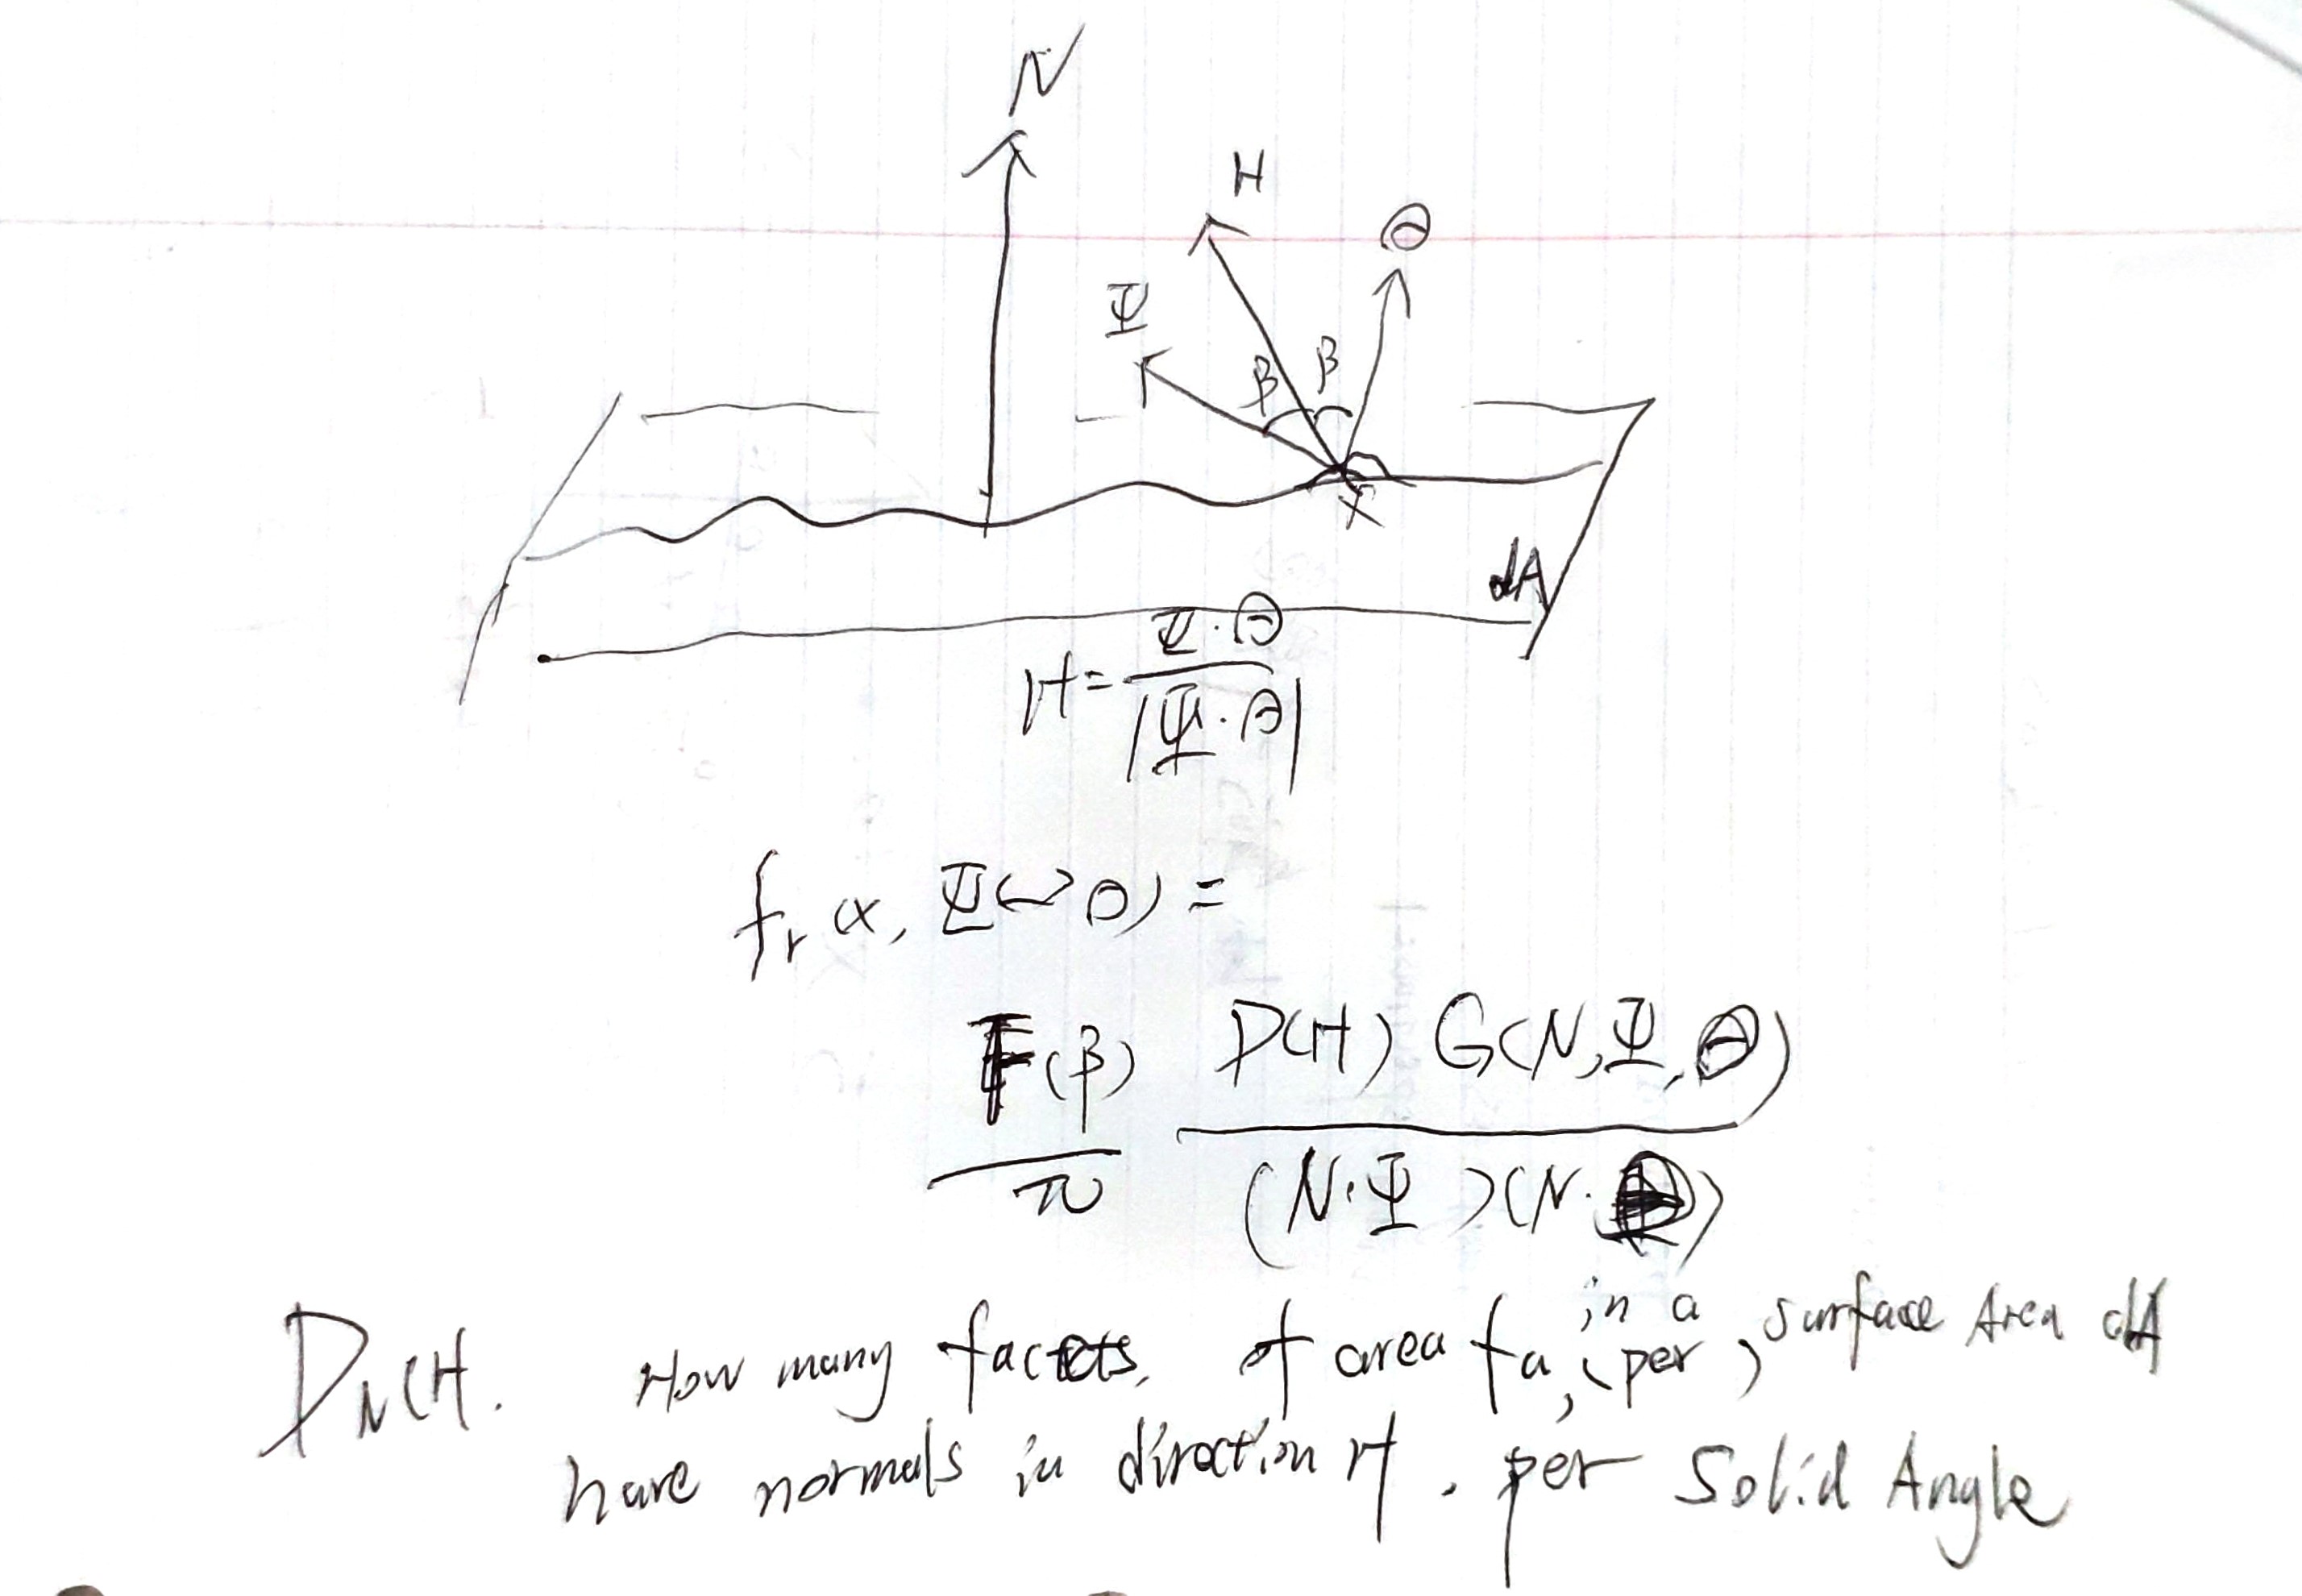 N
H
Θ
Ψ
β β
x
dA
H = Ψ·Θ / |Ψ·Θ|
fr(x, Ψ↔Θ) =
F(β)/π D(H) G(N,Ψ,Θ) / (N·Ψ)(N·Θ)
in a
DN(H. How many facets, of area fa, (per) surface Area dA
have normals in direction H, per Solid Angle